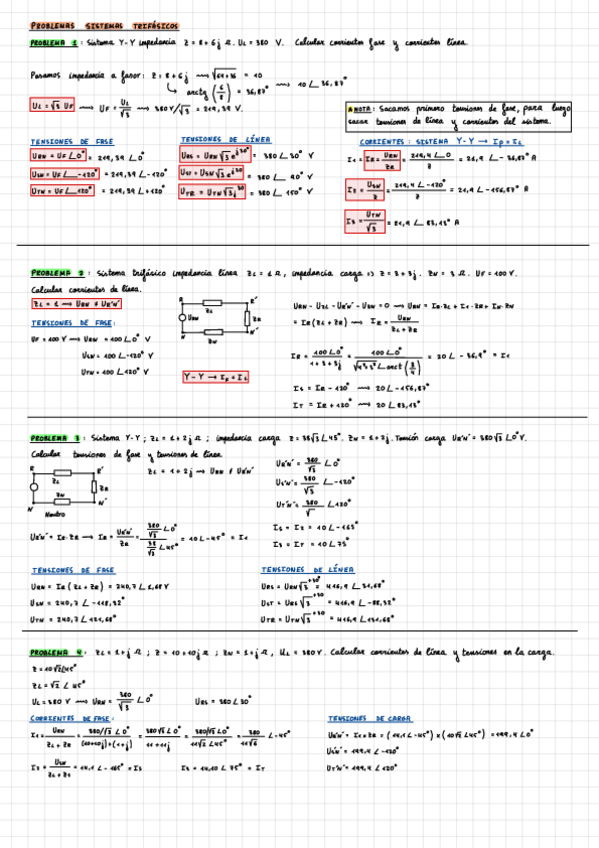 PROBLEMAS SISTEMAS TRIFÁSICOS
PROBLEMA 1: Sistema Y-Y impedancia Z = 8+6j Ω. UL = 380 V. Calcular corrientes fase y corrientes línea.
Pasamos impedancia a fasor: Z = 8+6j ⟿ √64+36 = 10
arctg (6/8) = 36,87° ⟿ 10∠36,87°
UL = √3 UF ⟿ UF = UL/√3 ⟿ 380V/√3 = 219,39 V.
NOTA: Sacamos primero tensiones de fase, para luego
sacar tensiones de línea y corrientes del sistema.
TENSIONES DE FASE
URN = UF∠0° = 219,39∠0°
USN = UF∠-120° = 219,39∠-120°
UTN = UF∠120° = 219,39∠+120°
TENSIONES DE LÍNEA
URS = URN√3 e^j30° = 380∠30° V
UST = USN√3 e^j30° = 380∠90° V
UTR = UTN√3 j30° = 380∠150° V
CORRIENTES: SISTEMA Y-Y → IF = IL
I1 = IR = URN/ZR = 219,4∠0/Z = 21,9∠-36,87° A
I2 = USN/Z = 219,4∠-120°/Z = 21,9∠-156,87° A
I3 = UTN/√3 = 21,9∠83,13° A
PROBLEMA 2: Sistema trifásico impedancia línea ZL = 1 Ω, impedancia carga => Z = 3+3j. ZN = 3 Ω. UF = 100V.
Calcular corrientes de línea.
ZL = 1 ⟿ URN ≠ UR'N'
TENSIONES DE FASE:
UF = 100 V ⟿ URN = 100∠0° V
USN = 100∠-120° V
UTN = 100∠120° V
R ZL R'
URN ZR
N ZN N'
Y-Y → IF = IL
URN - UZL - UR'N' - USN = 0 ⟿ URN = IR·ZL + I1·ZR + IN·ZN
= IR(ZL+ZR) ⟿ IR = URN/ZL+ZR
IR = 100∠0°/1+3+3j = 100∠0°/√4²+3²∠arct(3/4) = 20∠-36,9° = I1
IS = IR - 120° ⟿ 20∠-156,87°
IT = IR + 120° ⟿ 20∠83,13°
PROBLEMA 3: Sistema Y-Y; ZL = 1+2j Ω; impedancia carga Z = 38√3∠45°. ZN = 1+2j. Tensión carga UR'N' = 380√3∠0°V.
Calcular tensiones de fase y tensiones de línea.
R ZL R'
ZN ZR
N Neutro N'
ZL = 1+2j ⟿ URN ≠ UR'N'
UR'N' = 380/√3 ∠0°
US'N' = 380/√3 ∠-120°
UT'N' = 380/√ ∠120°
UR'N' = IR·ZR ⟿ IR = UR'N'/ZR = 380/√3∠0°/38/√3∠45° = 10∠-45° = I1
IS = I2 = 10∠-165°
I3 = IT = 10∠75°
TENSIONES DE FASE
URN = IR(ZL+ZR) = 240,7∠1,68V
USN = 240,7∠-118,32°
UTN = 240,7∠121,68°
TENSIONES DE LÍNEA
URS = URN√3 +30° = 416,9∠31,68°
UST = URS√3 +30° = 416,9∠-88,32°
UTR = UTN√3 +30° = 416,9∠151,68°
PROBLEMA 4: ZL = 1+j Ω; Z = 10+10j Ω; ZN = 1+j Ω, UL = 380V. Calcular corrientes de línea y tensiones en la carga.
Z = 10√2∠45°
ZL = √2∠45°
UL = 380 V ⟿ URN = 380/√3 ∠0°
URS = 380∠30°
CORRIENTES DE FASE:
I1 = URN/ZL+ZR = 380/√3∠0°/(10+10j)+(1+j) = 380√6∠0°/11+11j = 380/√2∠0°/11√2∠45° = 380/11√6 ∠-45°
I2 = USN/ZL+ZS = 14,1∠-165° = IS
I3 = 14,10∠75° = IT
TENSIONES DE CARGA
UR'N' = I1×ZR = (14,1∠-45°)×(10√2∠45°) = 199,4∠0°
US'N' = 199,4∠-120°
UT'N' = 199,4∠120°